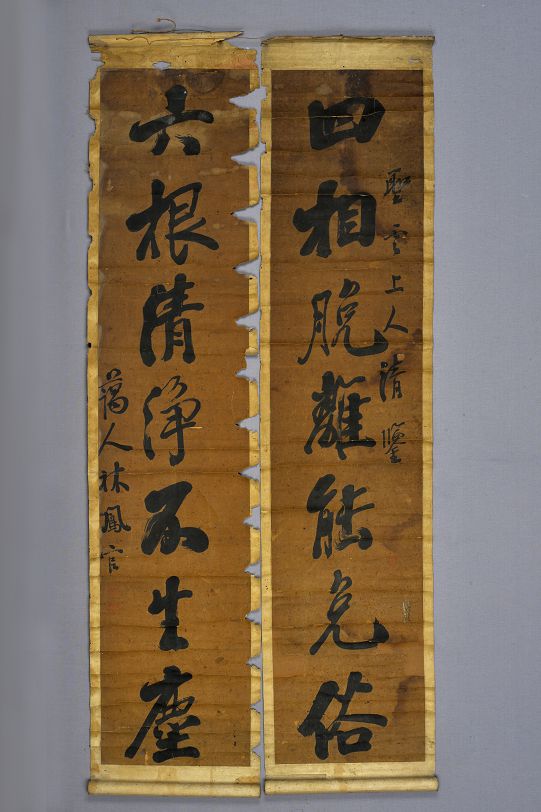 聖雲上人清鑒
四相脫離能免俗
六根清淨不生塵
蕅人林鳳官